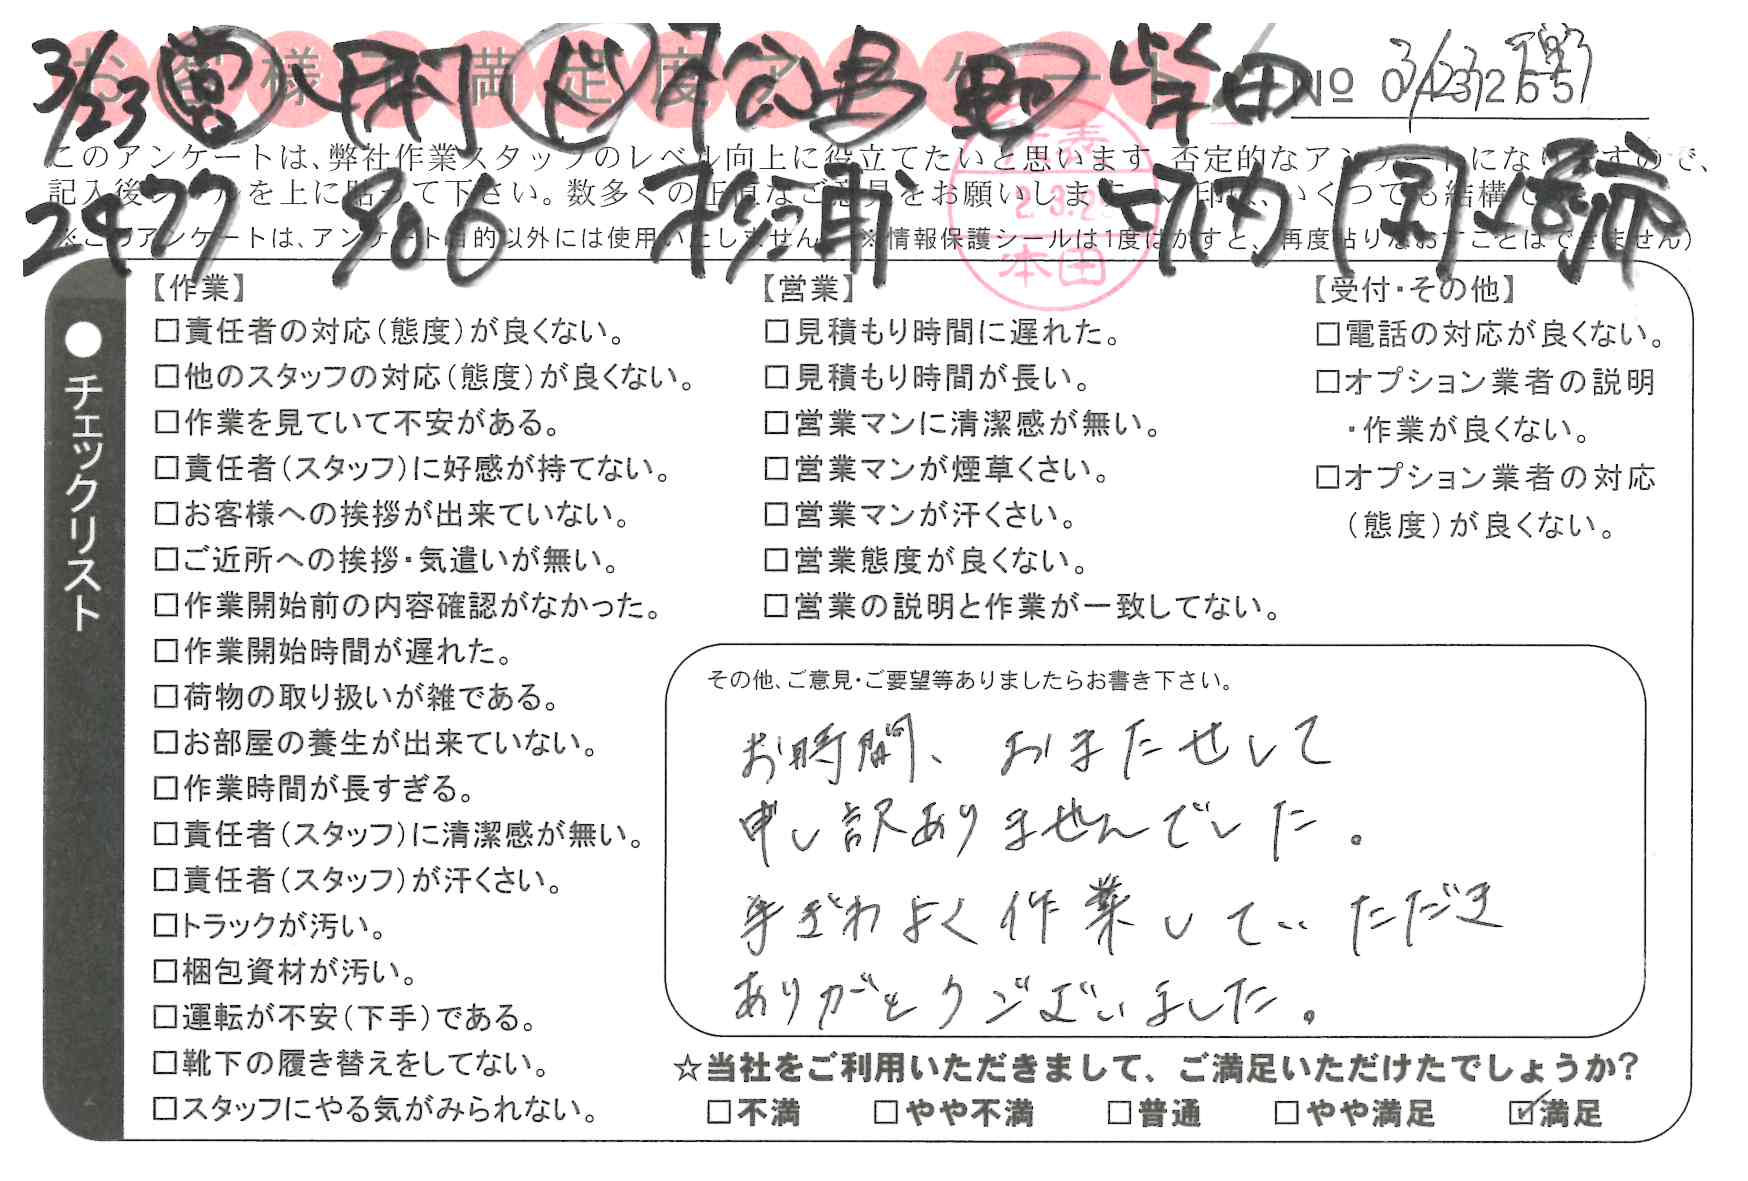 お客様満足度アンケート
3/23
松島
柴田
No
このアンケートは、弊社作業スタッフのレベル向上に役立てたいと思います。否定的なアンケートになりますので、
記入後シールを上に貼って下さい。数多くの正直なご意見をお願いします。
2477 906 杉浦
※このアンケートは、アンケート目的以外には使用いたしません。(※情報保護シールは1度はがすと、再度貼りなおすことはできません)
本田
●チェックリスト
【作業】
□責任者の対応(態度)が良くない。
□他のスタッフの対応(態度)が良くない。
□作業を見ていて不安がある。
□責任者(スタッフ)に好感が持てない。
□お客様への挨拶が出来ていない。
□ご近所への挨拶・気遣いが無い。
□作業開始前の内容確認がなかった。
□作業開始時間が遅れた。
□荷物の取り扱いが雑である。
□お部屋の養生が出来ていない。
□作業時間が長すぎる。
□責任者(スタッフ)に清潔感が無い。
□責任者(スタッフ)が汗くさい。
□トラックが汚い。
□梱包資材が汚い。
□運転が不安(下手)である。
□靴下の履き替えをしてない。
□スタッフにやる気がみられない。
【営業】
□見積もり時間に遅れた。
□見積もり時間が長い。
□営業マンに清潔感が無い。
□営業マンが煙草くさい。
□営業マンが汗くさい。
□営業態度が良くない。
□営業の説明と作業が一致してない。
【受付・その他】
□電話の対応が良くない。
□オプション業者の説明
・作業が良くない。
□オプション業者の対応
(態度)が良くない。
その他、ご意見・ご要望等ありましたらお書き下さい。
お時間、おまたせして
申し訳ありませんでした。
手ぎわよく作業していただき
ありがとうございました。
☆当社をご利用いただきまして、ご満足いただけたでしょうか?
□不満 □やや不満 □普通 □やや満足 ☑満足